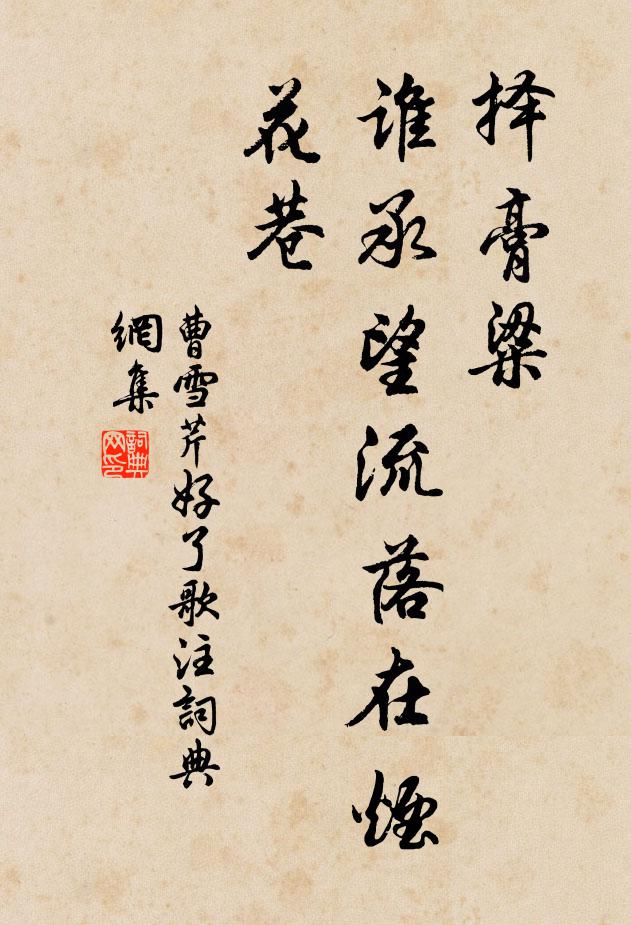 择膏粱
谁承望流落在煙
花巷
曹雪芹好了歌注詞典
網集
詞典
网印